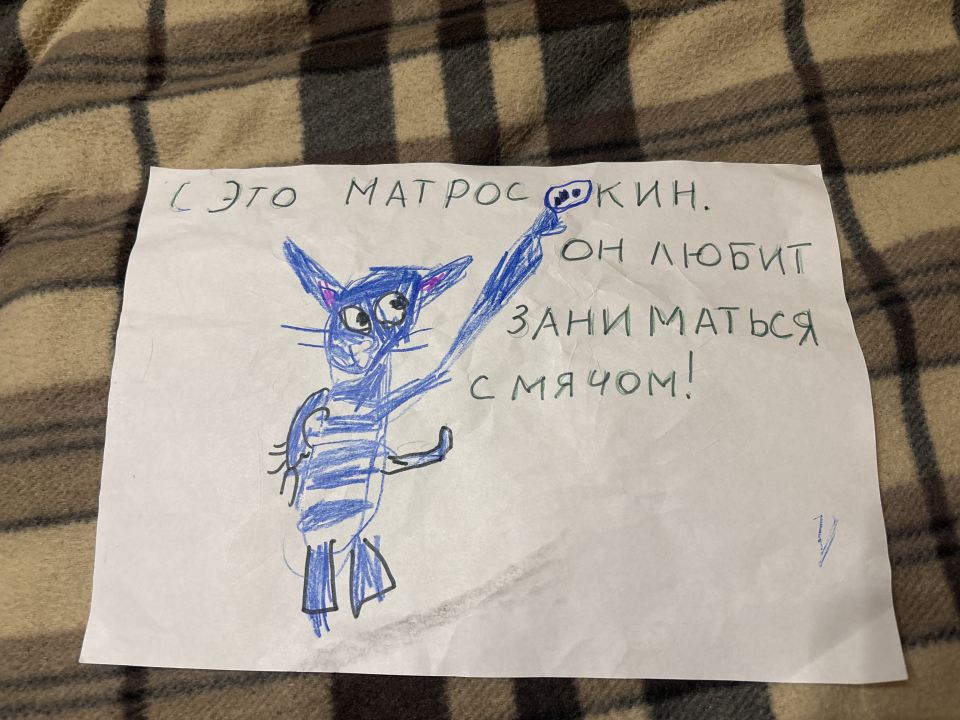 С ЭТО МАТРОС КИН.
ОН ЛЮБИТ
ЗАНИМАТЬСЯ
С МЯЧОМ!